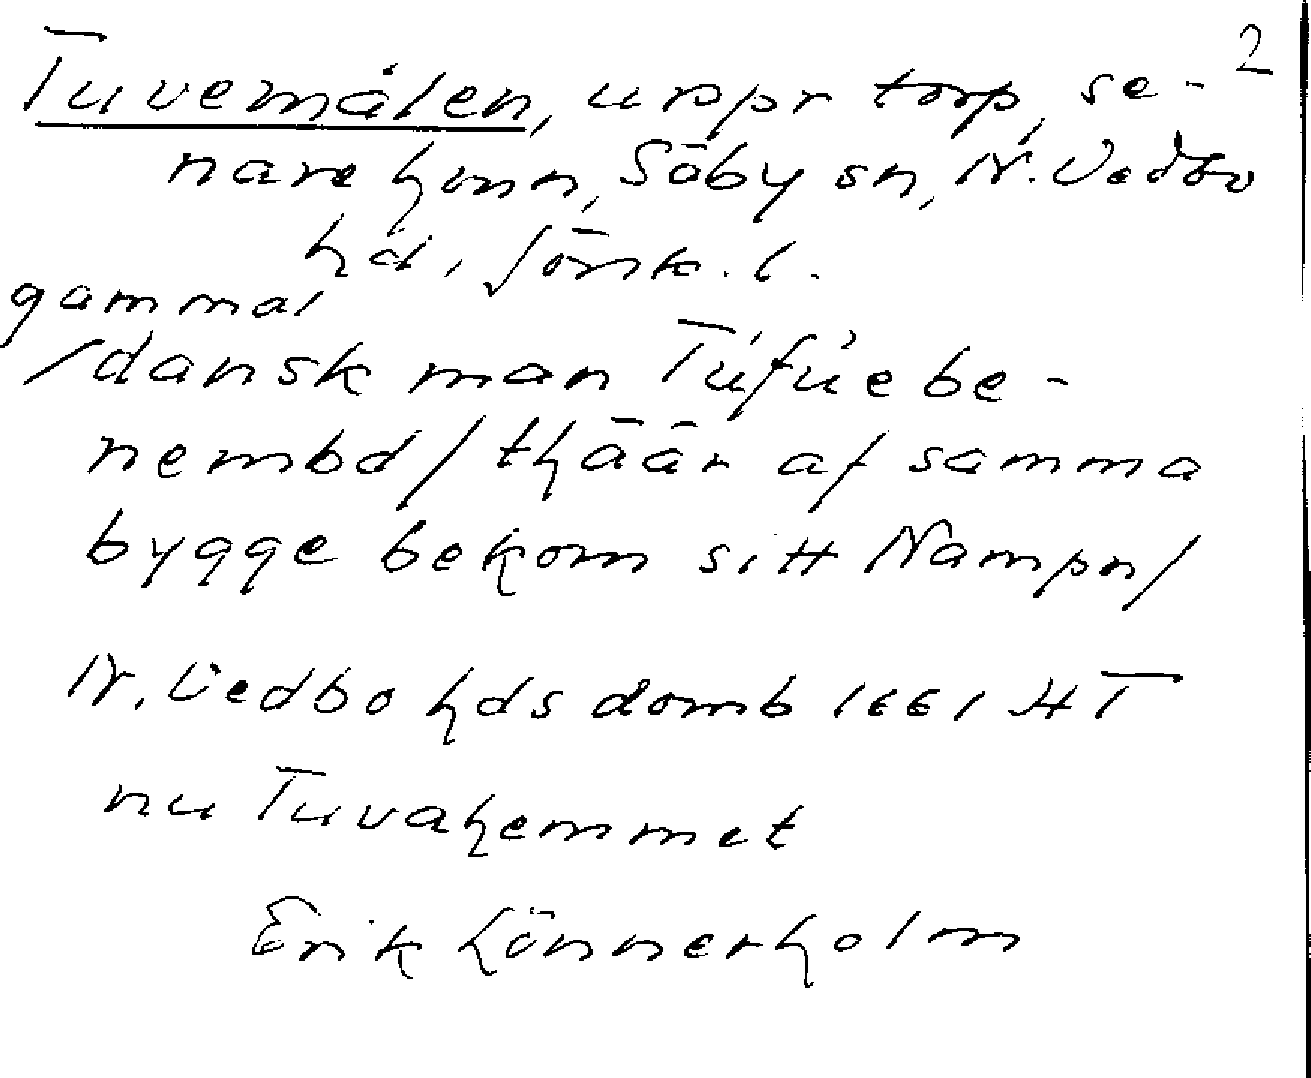 2
Tuvemålen, urspr torp, se-
nare hmn, Säby sn, N. Vedbo
hd, Jönk. l.
gammal
/dansk man Túfúe be-
nembd/ thäär af samma
bygge bekom sitt Nampn/
N. Vedbo hds domb 1661 HT
nu Tuvahemmet
Erik Lönnerholm